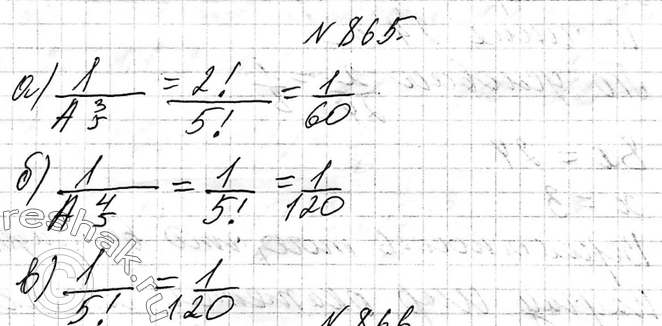 N 865.
а) 1/A_5^3 = 2!/5! = 1/60
б) 1/A_5^4 = 1/5! = 1/120
в) 1/5! = 1/120
N 866
reshak.ru